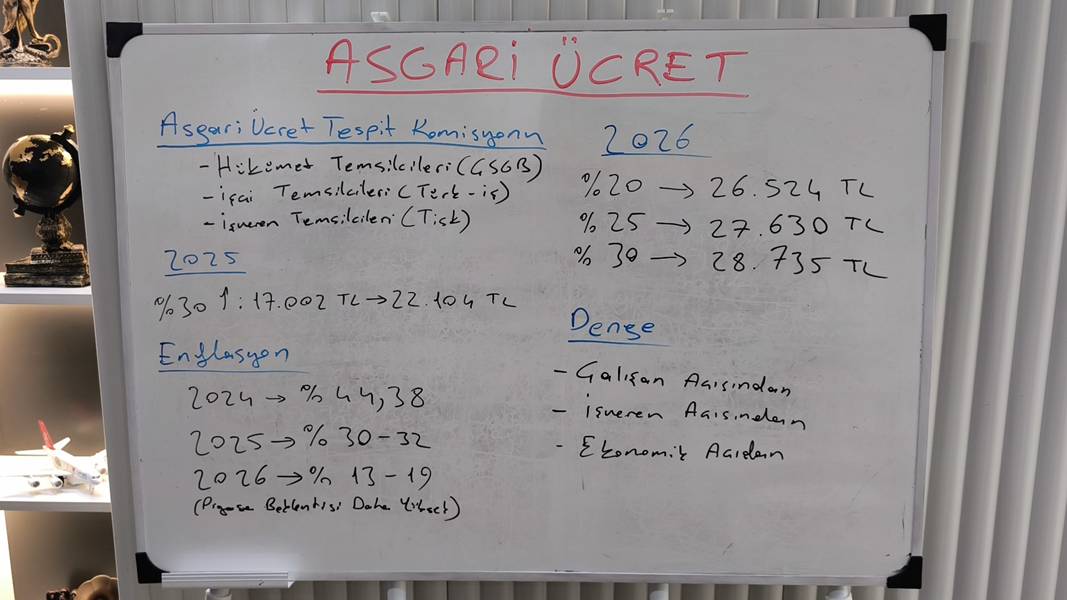 ASGARİ ÜCRET
Asgari Ücret Tespit Komisyonu
- Hükümet Temsilcileri (ÇSGB)
- İşçi Temsilcileri (Türk-iş)
- İşveren Temsilcileri (Tisk)
2025
%30 ↑ : 17.002 TL → 22.104 TL
Enflasyon
2024 → % 44,38
2025 → % 30-32
2026 → % 13-19
(Piyasa Beklentisi Daha Yüksek)
2026
%20 → 26.524 TL
%25 → 27.630 TL
%30 → 28.735 TL
Denge
- Çalışan Açısından
- İşveren Açısından
- Ekonomik Açıdan